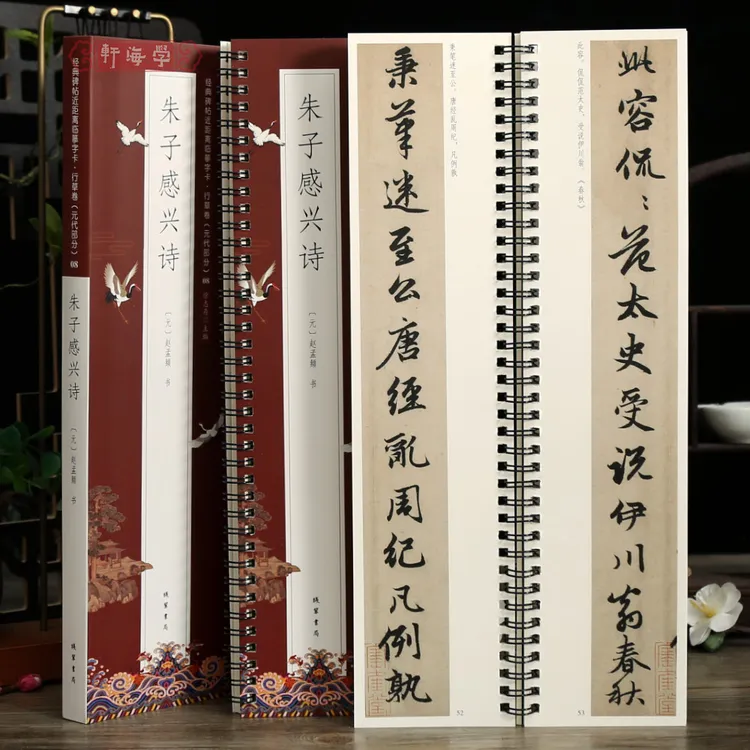 軒海學
经典碑帖近距离临摹字卡·行草卷（元代部分）08
朱子感兴诗
〔元〕赵孟頫 书
朱子感兴诗
〔元〕赵孟頫 书
线装书局
经典碑帖近距离临摹字卡·行草卷（元代部分）08
朱子感兴诗
〔元〕赵孟頫 书
线装书局
秉筆迷至公唐經亂周紀凡例孰
秉笔迷至公。唐经乱周纪，凡例孰
52
此容。侃侃范太史，受说伊川翁。《春秋》
此容侃〻范太史受説伊川翁春秋
53